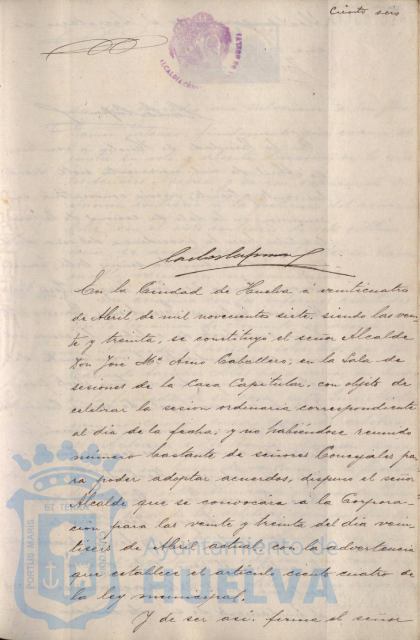 Ciento seis
ALCALDÍA
En la Ciudad de Huelva á veinticuatro
de Abril, de mil novecientos siete, siendo las vein
te y treinta, se constituyó el señor Alcalde
Don José Mª Caballero, en la Sala de
sesiones de la Casa Capitular, con objeto de
celebrar la sesion ordinaria correspondiente
al dia de la fecha; y no habiéndose reunido
número bastante de señores Concejales pa
ra poder adoptar acuerdos, dispuso el señor
Alcalde que se convocára á la Corpora-
cion para las veinte y treinta del dia vein-
tiseis de Abril actual con la advertencia
que establece el artículo ciento cuatro de
la ley municipal.
Y de ser así, firma el señor
PORTUS MARIS
ET TERRAE
Ayuntamiento de
HUELVA